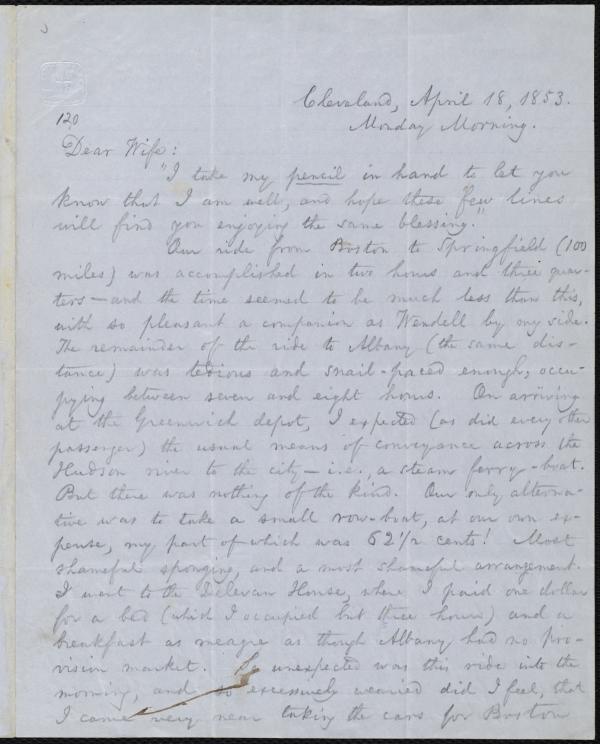 120
Cleveland, April 18, 1853.
Monday Morning.
Dear Wife:
"I take my pencil in hand to let you
know that I am well, and hope these few lines
will find you enjoying the same blessing."
Our ride from Boston to Springfield (100
miles) was accomplished in two hours and three quar-
ters—and the time seemed to be much less than this,
with so pleasant a companion as Wendell by my side.
The remainder of the ride to Albany (the same dis-
tance) was tedious and snail-paced enough, occu-
pying between seven and eight hours. On arriving
at the Greenwich depot, I expected (as did every other
passenger) the usual means of conveyance across the
Hudson river to the city—i.e., a steam ferry-boat.
But there was nothing of the kind. Our only alterna-
tive was to take a small row-boat, at our own ex-
pense, my part of which was 62 1/2 cents! Most
shameful sponging, and a most shameful arrangement.
I went to the Delevan House, where I paid one dollar
for a bed (which I occupied but three hours) and a
breakfast as meagre as though Albany had no pro-
vision market. So unexpected was this ride into the
morning, and so excessively wearied did I feel, that
I came very near taking the cars for Boston